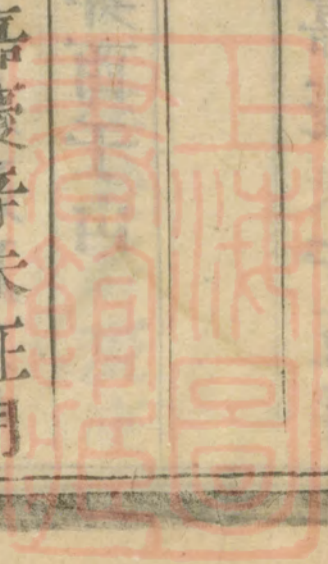 上海圖
書館藏
嘉慶辛未正月